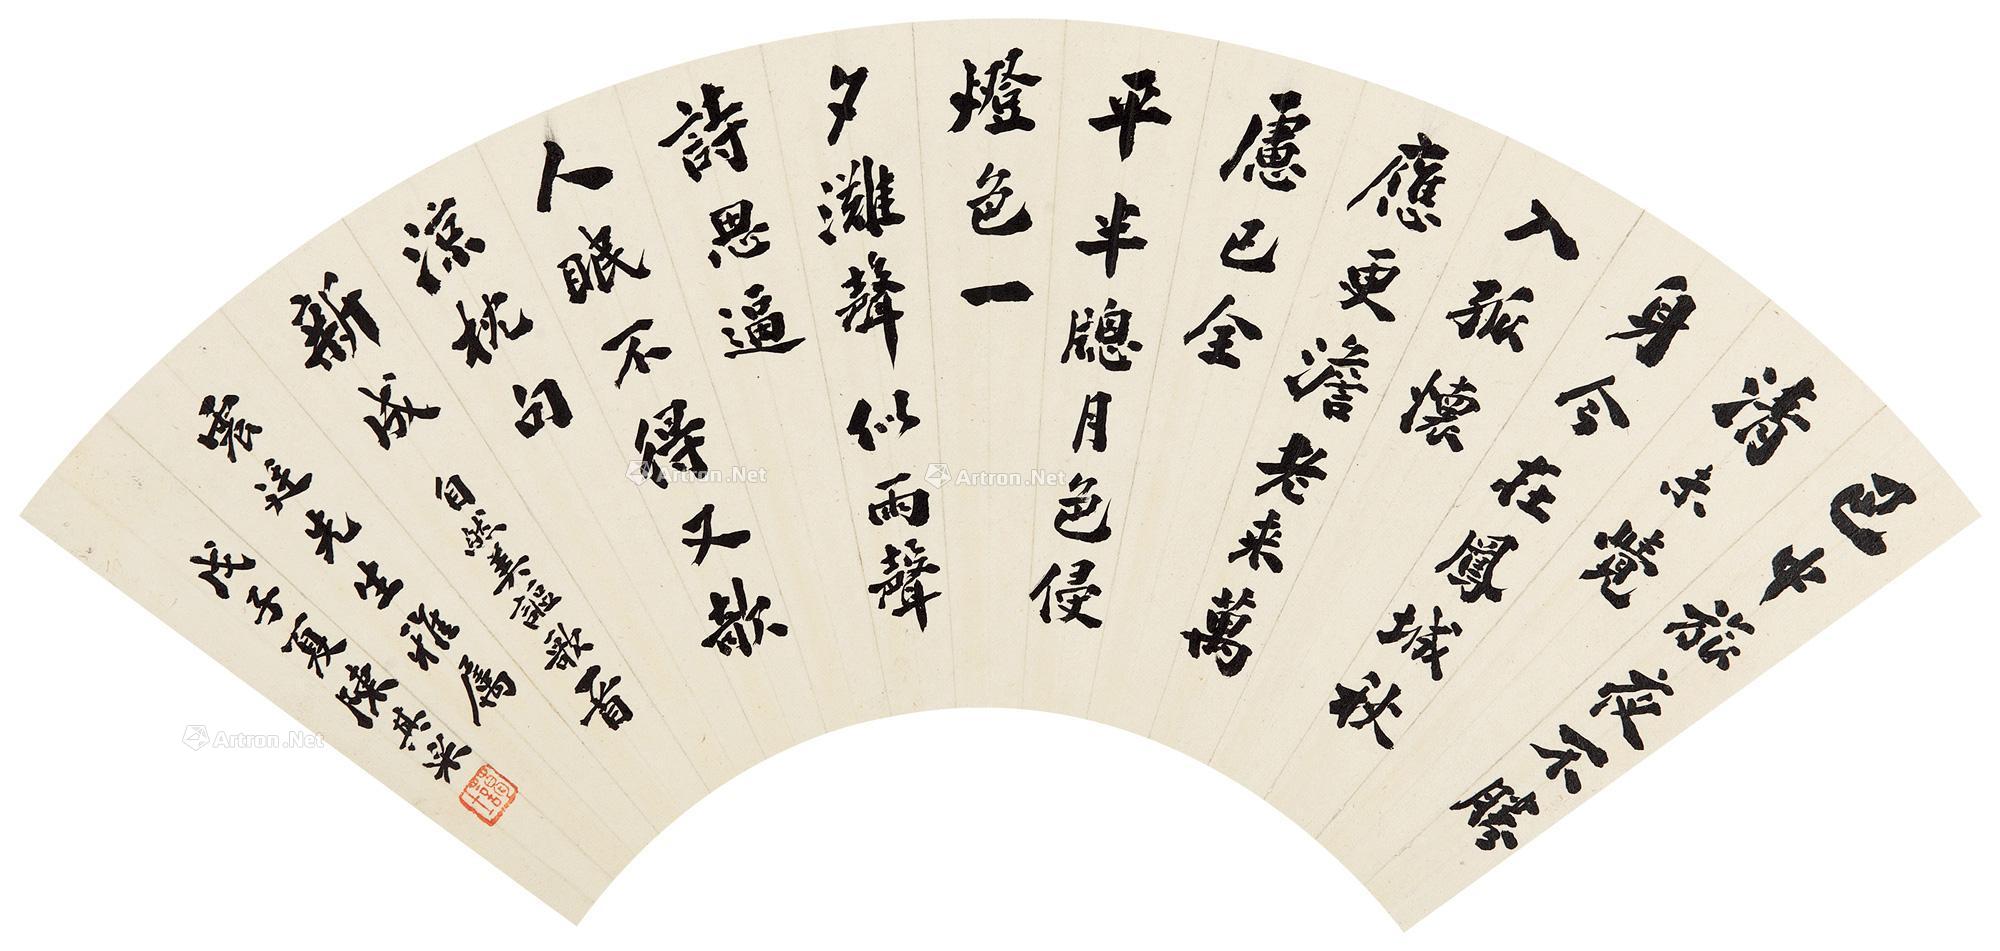 旅夜不勝
清未覺
身今在鳳城秋
入孤懷
應更澹老来萬
慮已全
平半牕月色侵
燈色一
夕灘聲似雨聲
詩思逼
人眠不得又欹
涼枕句
新成
自然美謳歌
先生雅屬
戊子夏陳其采
Artron.Net
Artron.Net
Artron.Net